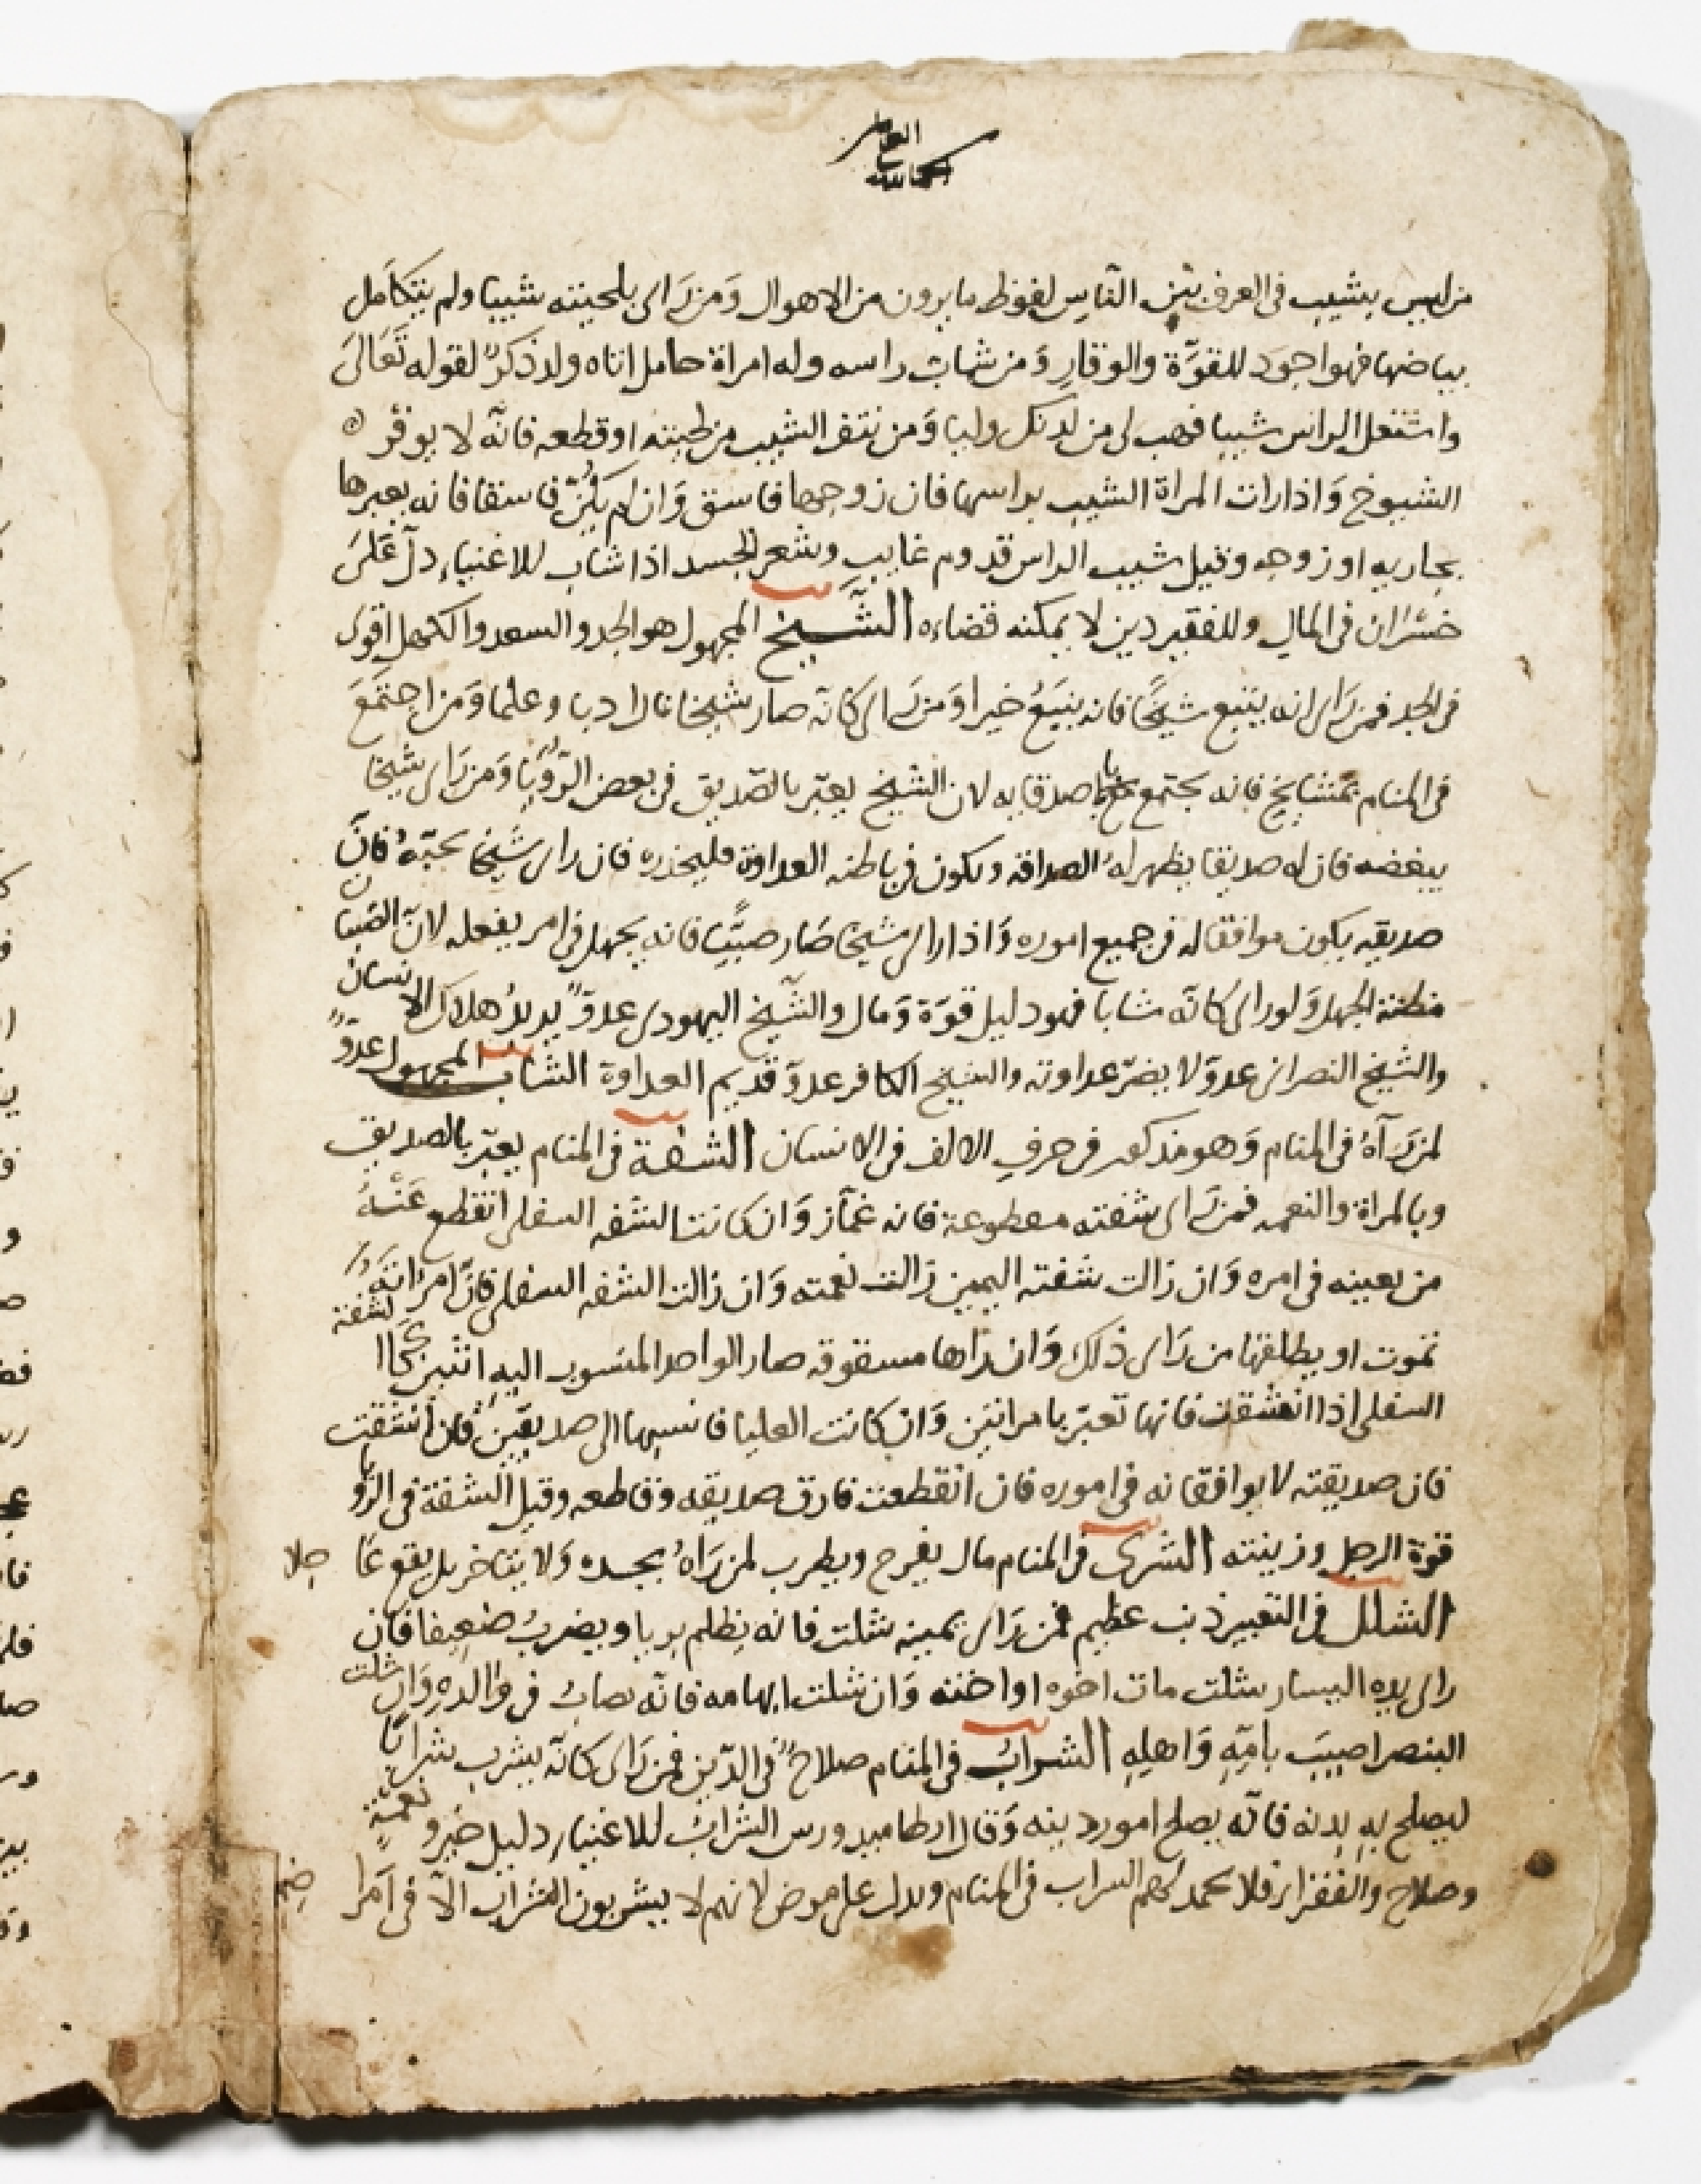 من ليس بشيب في العرف بين الناس لفوظ ما يرون من الاهوال وَمن رَاى بلحيته شيبا ولم يتكامَل
بياضها فهو اجوَد للقوّة والوقارِ وَمن شاب راسه وله امراة حامل اتاه ولد ذكرٌ لقوله تَعَالىَ
واشتعل الراس شيبا فهب لى من لدنك وليا وَمن نتف الشيب من لحيته او قطعه فانّه لا يوقر
الشيوخ وَاذا رات المراة الشيب براسها فان زوجها فاسق وَان لم يكُن فاسقا فانه يعيرها
بجاريه او زوجه وقيل شيب الراس قدوم غايب وشعر الجسد اذا شاب للاغنياء دلّ عَلىَ
خسْرَان في المالِ وللفقير دين لا يمكنه قضاءه الشَّيخ المجهول هو الجد والسعد والكهل اقوى
في الجد فمن رَاى انه يتبع شيخًا فانه يتبعُ خيرا وَمن رَاى كَانّه صار شيخا نال ادبا وعلما وَمن اجتمَعَ
في المنام بمَشايخ فانه يجتمع باصدقايه لان الشّيخ يعبّر بالصّديق في بعض الرّؤيَا وَمن رَاى شيخا
يبغضه فان له صديقا يظهر لهُ الصداقه ويكون في باطنه العداوة فليحذره فان راى شَيخا يحبّهُ فانّ
صديقه يكون موافقا له في جميع اموره وَاذا راى شيخا صَار صبيًّا فانه يجهل في امر يفعله لانّ الصّبيان
مظنة الجهل وَلو راى كَانّه شابا فهو دليل قوّة وَمال والشّيخ اليهودى عدوّ يريدُ هلاك الانسان
والشّيخ النصرانى عدوّ لا يضرّ عداوته والشيخ الكافر عدوّ قديم العداوة الشاب المجهول عدوٌّ
لمن رَآهُ في المنام وَهو مذكور في حرفِ الالف في الانسان الشفة في المنام يعبّر بالصديق
وبالمراة والنعمه فمن رَاى شفته مقطوعة فانه غمّاز وَان كانت الشفه السفلى انقطع عَنْهُ
من يعينه في امره وَان زالت شفته اليمين زالت نعمته وَان زالت الشفه السفلى فانّ امرَاتَهُ
تموت او يطلقها من رَاى ذلك وَان رَاها مشقوقه صار الواحد المنسوب اليه اثنين لشفة
السفلى اذا انشقت فانها تعبّر بامراتين وَان كانت العليا فانسبها الى صديقَينِ فان انشَقت
فان صديقته لا يوافقانه في اموره فان انقطعت فارق صديقه وقاطعه وقيل الشفة في الرؤيا
قوة الرجل وزينته الشرى في المنام مال يفرح ويطرب لمن رَاهُ بجسده وَلا يتاخر بل يقع عَا
جلا
الشلل في التعبير ذنب عظيم فمن رَاى يمينه شلت فانه يظلم بريا ويضربُ ضعيفا فان
راى يده اليسار شلت مات اخوه او اخته وَان شلت ابهامه فانّه يصابُ في والده وَان شلت
البنصر اصيبَ بامّهِ وَاهلهِ الشرابُ في المنام صلاحٌ في الدّين فمن رَاى كانّه يشرب شرابًا
ليصلح به بدنه فانّه يصلح امور دينه وَقال ارطاميدورس الشّرابُ للاغنياء دليل خير ونعمة
وصلاح والفقراء فلا يحمد لهم الشراب في المنام ويدل على مرض لانهم لا يشربون الشّراب الاّ في امْرا
ضهم